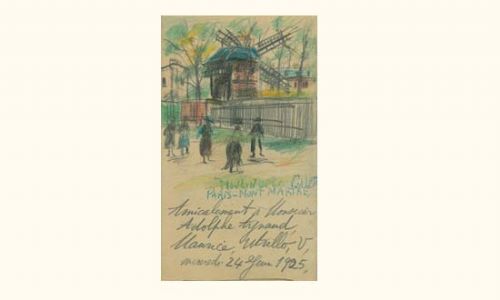 MOULIN DE LA GALETTE
PARIS-MONTMARTRE,
Amicalement à Monsieur
Adolphe
Maurice, Utrillo, V,
mercredi 24 Juin 1925,